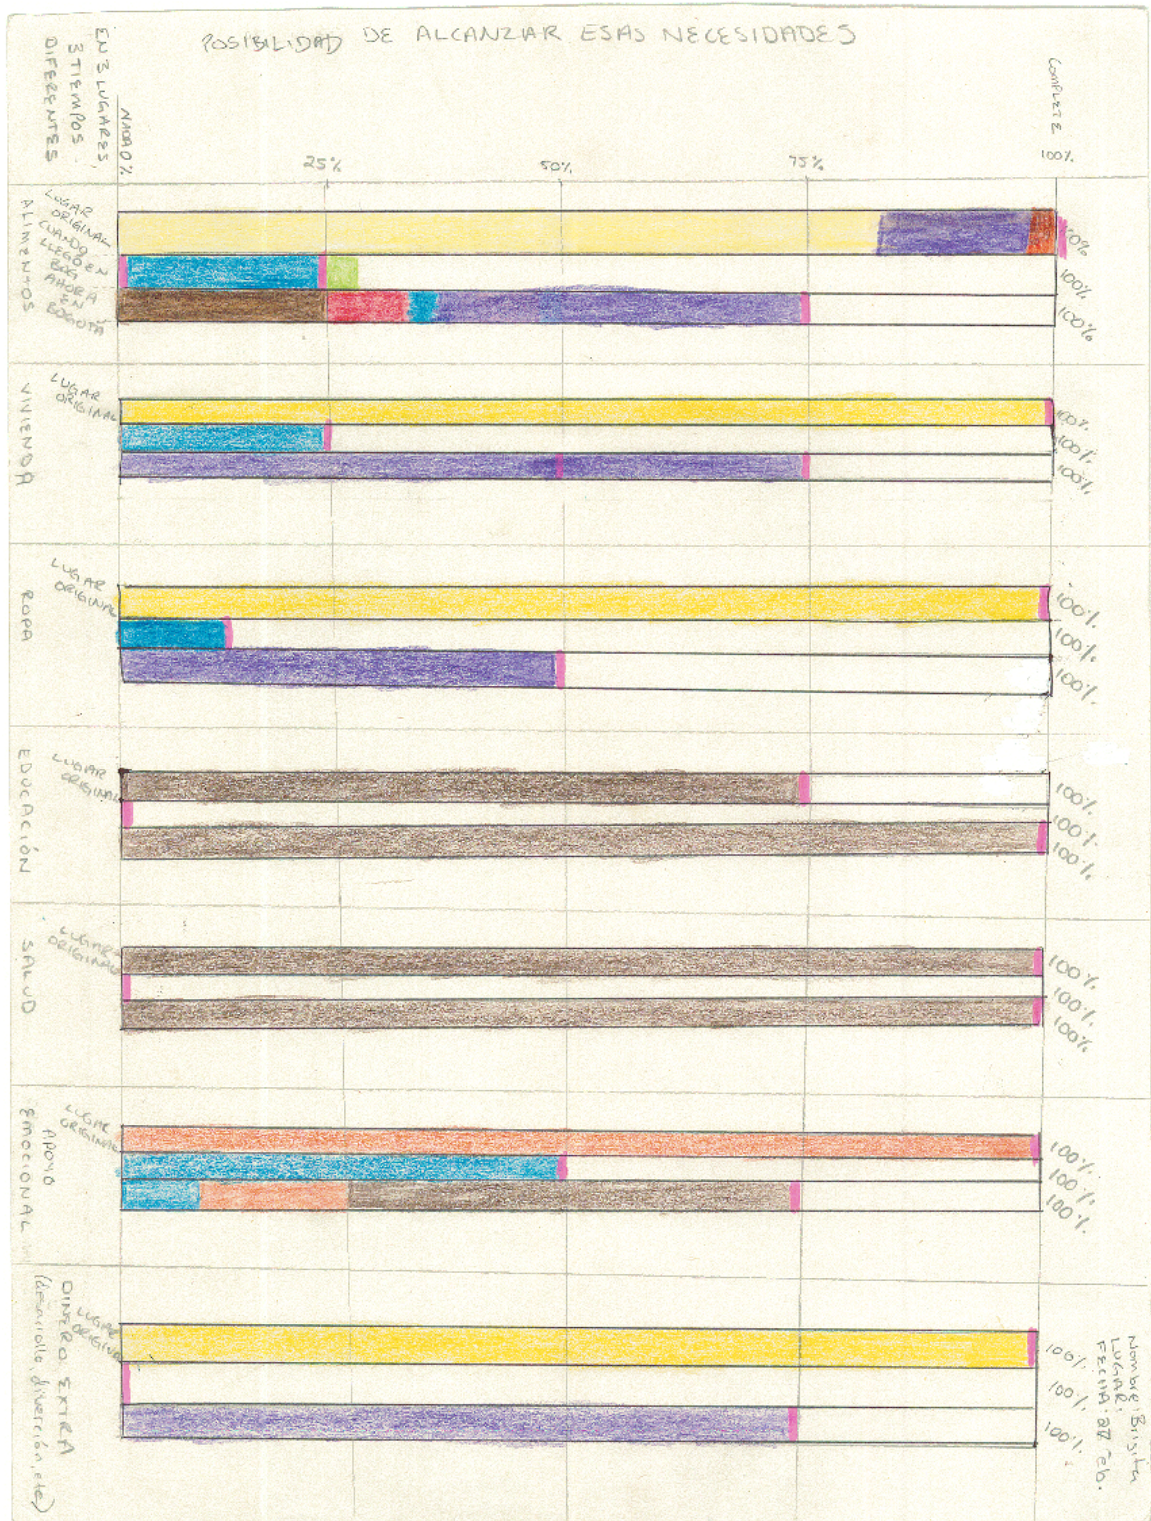 POSIBILIDAD DE ALCANZIAR ESAS NECESIDADES
EN 3 LUGARES,
3 TIEMPOS -
DIFERENTES
NADA 0%
25%
50%
75%
COMPLETE
100%
ALIMENTOS
LUGAR
ORIGINAL
CUANDO
LLEGO EN
BOG
AHORA
EN
BOGOTÁ
100%
100%
VIVIENDA
LUGAR
ORIGINAL
100%
100%
100%
ROPA
LUGAR
ORIGINAL
100%
100%
100%
EDUCACIÓN
LUGAR
ORIGINAL
100%
100%
100%
SALUD
LUGAR
ORIGINAL
100%
100%
100%
APOYO
EMOCIONAL
LUGAR
ORIGINAL
100%
100%
100%
DINERO EXTRA
(desarrollo, diversión, etc)
LUGAR
ORIGINAL
100%
100%
100%
Nombre: Brigita
LUGAR:
FECHA: 27 Feb.